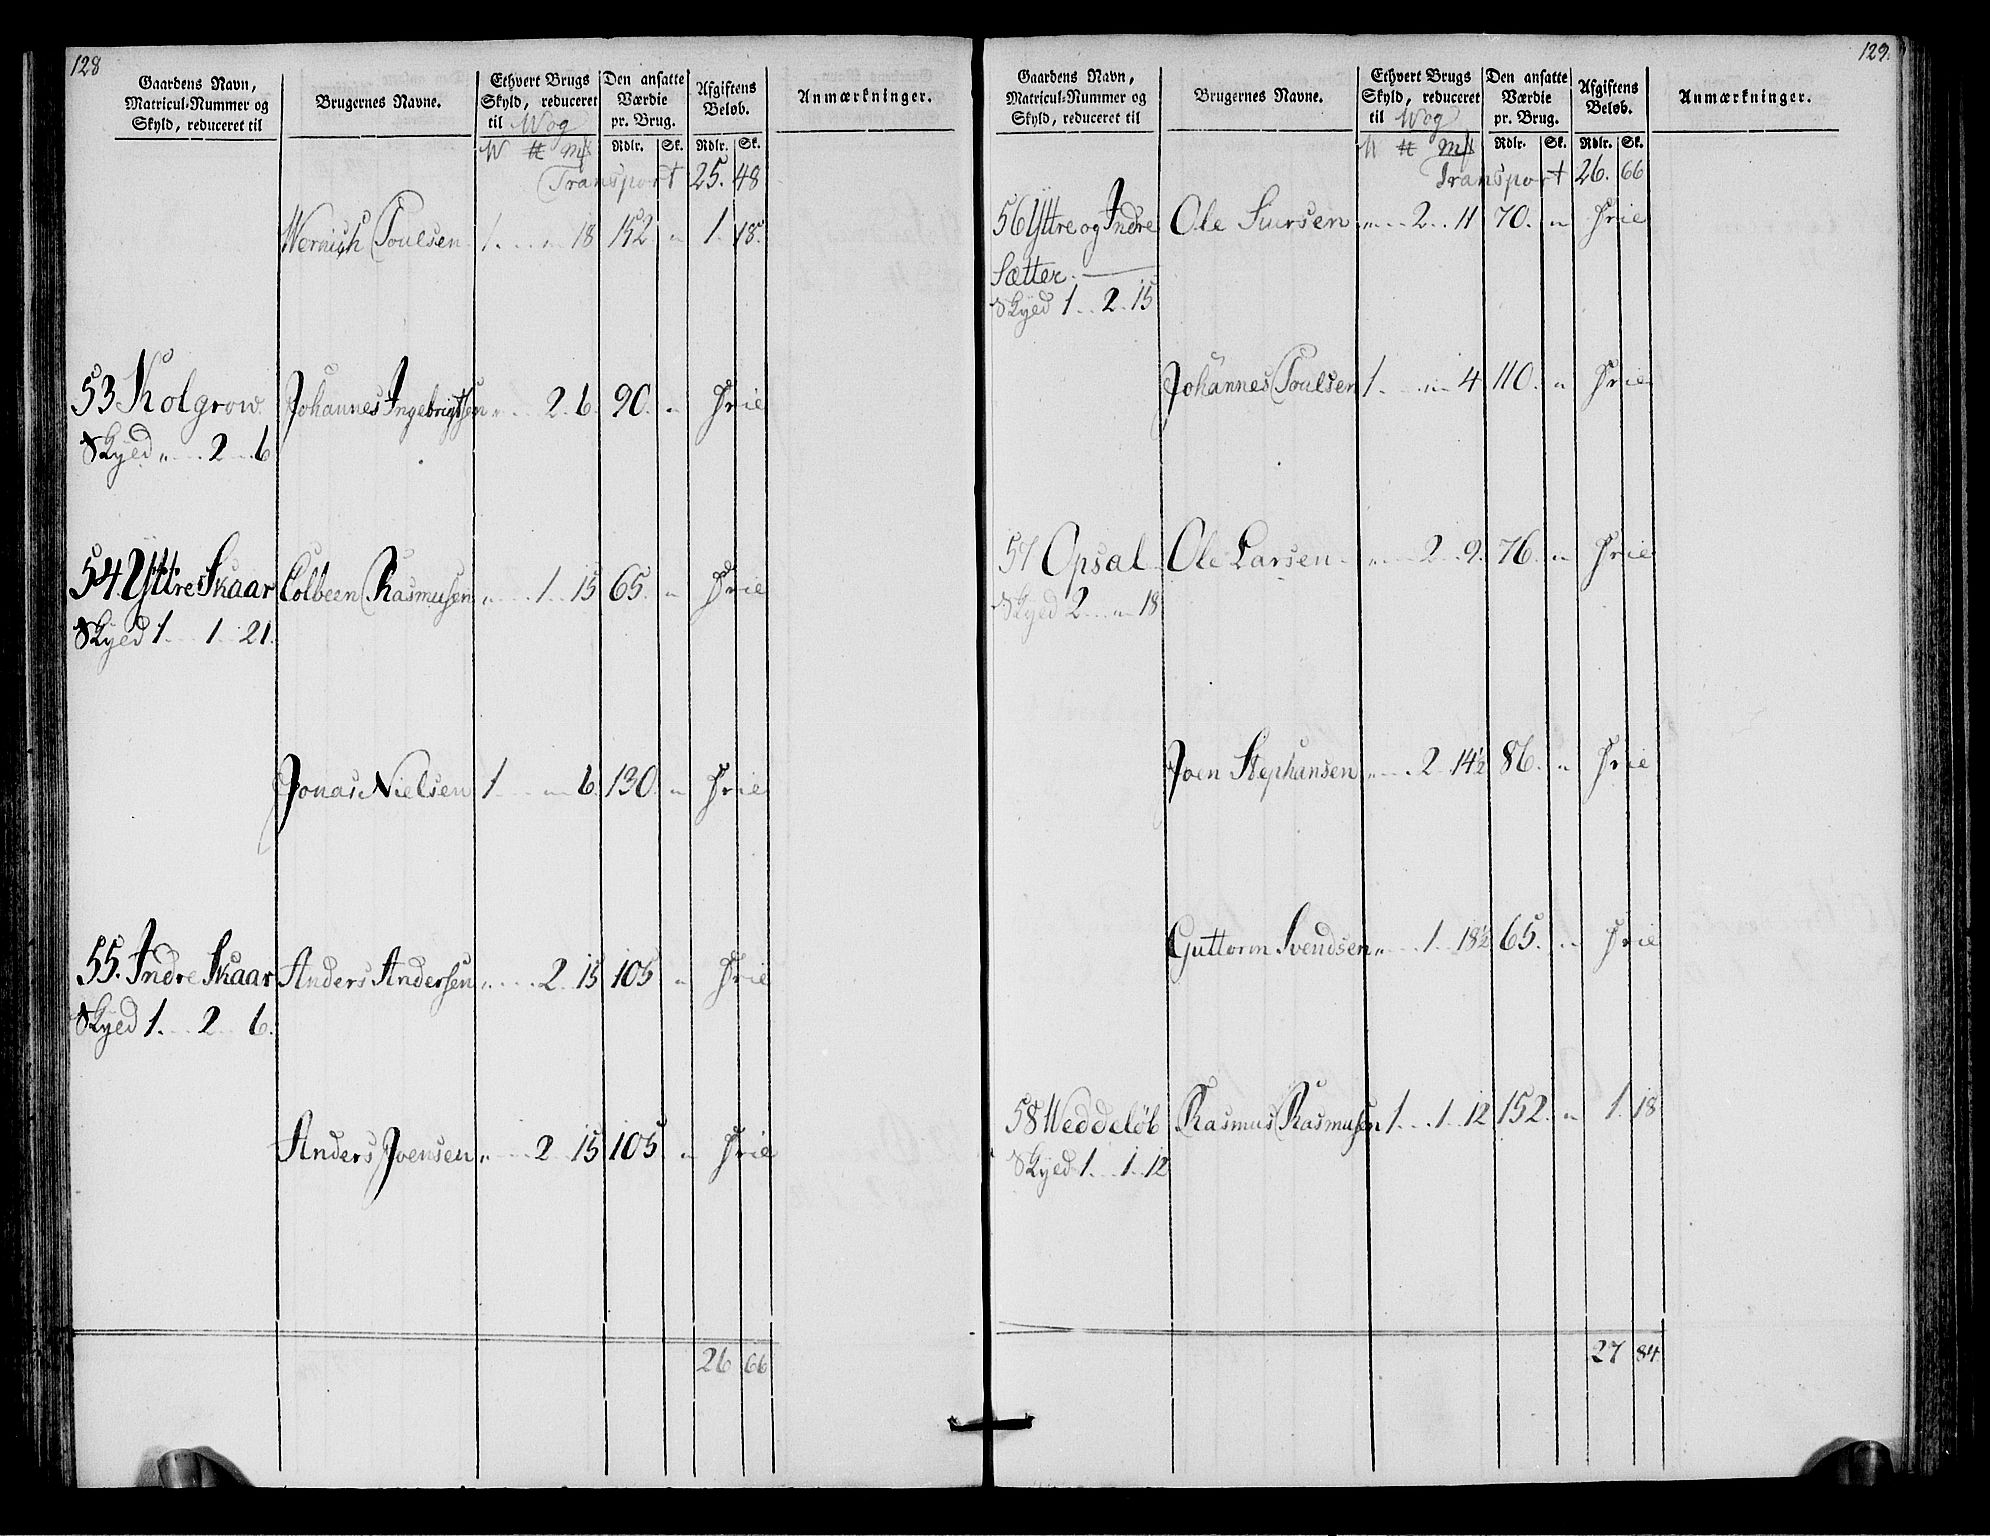 128
Gaardens Navn, Matricul-Nummer og Skyld, reduceret til
Brugernes Navne.
Ethvert Brugs Skyld, reduceret til Wog
Den ansatte Værdie pr. Brug.
Afgiftens Beløb.
Anmærkninger.
W ℔ Mk Rdlr. Sk. Rdlr. Sk.
Transport 25. 48
Wernich Poulsen 1 „ 18 152 „ 1. 18.
53 Kolgrow Johannes Ingebrigtsen „ 2. 6. 90. „ Frie
Skyld „ 2 6
54 Yttre Skaar Colbeen Rasmusen „ 1. 15 65. „ Frie
Skyld 1. 1 21.
Jonas Nielsen 1 „ 6. 130. „ Frie
55. Indre Skaar Anders Andersen „ 2 15 105 „ Frie
Skyld 1. 2 6.
Anders Joensen „ 2 15 105 „ Frie
26 66
129.
Gaardens Navn, Matricul-Nummer og Skyld, reduceret til
Brugernes Navne.
Ethvert Brugs Skyld, reduceret til Wog
Den ansatte Værdie pr. Brug.
Afgiftens Beløb.
Anmærkninger.
W ℔ Mk Rdlr. Sk. Rdlr. Sk.
Transport 26. 66
56 Yttre og Indre Ole Siursen „ 2 11 70. „ Frie
Sætter.
Skyld 1 2 15
Johannes Poulsen 1. „ 4 110. „ Frie
57 Opsal Ole Larsen „ 2 9. 76. „ Frie
Skyld 2 „ 18
Joen Stephansen „ 2 14½ 86. „ Frie
Guttorm Svendsen „ 1 18½ 65. „ Frie
58 Weddeløb Rasmus Rasmusen 1 1 12 152. „ 1. 18
Skyld 1. 1. 12
27 84